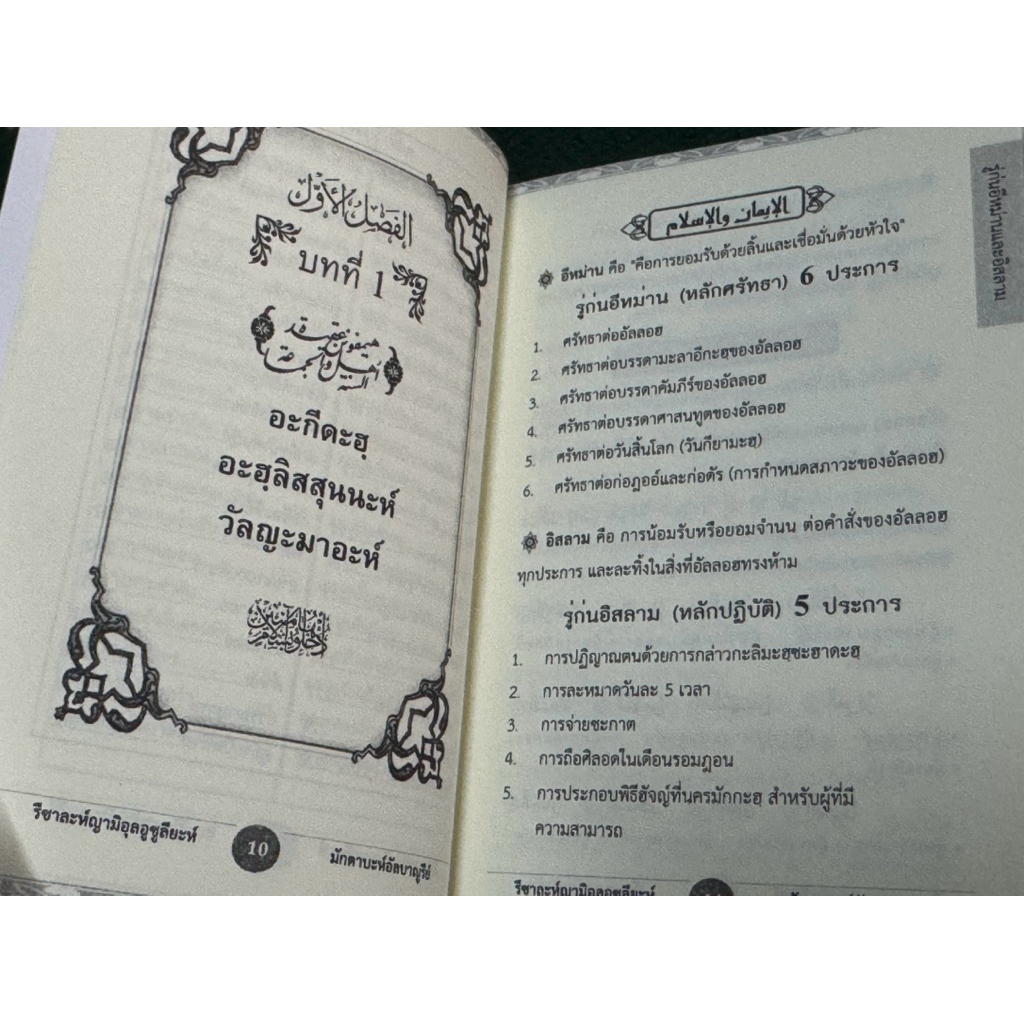 الفصل الأول
บทที่ 1
อะกีดะฮฺ
อะฮฺลิสสุนนะห์
วัลญะมาอะห์
รีซาละห์ญามิอุลอูซูลียะห์
10
มักตาบะห์อัลบาญูรีย์
รู่ก่นอีหม่านและอิสลาม
الإيمان والإسلام
อีหม่าน คือ "คือการยอมรับด้วยลิ้นและเชื่อมั่นด้วยหัวใจ"
รู่ก่นอีหม่าน (หลักศรัทธา) 6 ประการ
1. ศรัทธาต่ออัลลอฮ
2. ศรัทธาต่อบรรดามะลาอีกะฮฺของอัลลอฮ
3. ศรัทธาต่อบรรดาคัมภีร์ของอัลลอฮ
4. ศรัทธาต่อบรรดาศาสนทูตของอัลลอฮ
5. ศรัทธาต่อวันสิ้นโลก (วันกียามะฮฺ)
6. ศรัทธาต่อก่อฎออ์และก่อดัร (การกำหนดสภาวะของอัลลอฮ)
อิสลาม คือ การน้อมรับหรือยอมจำนน ต่อคำสั่งของอัลลอฮ
ทุกประการ และละทิ้งในสิ่งที่อัลลอฮทรงห้าม
รู่ก่นอิสลาม (หลักปฏิบัติ) 5 ประการ
1. การปฏิญาณตนด้วยการกล่าวกะลิมะฮฺชะฮาดะฮฺ
2. การละหมาดวันละ 5 เวลา
3. การจ่ายซะกาต
4. การถือศิลอดในเดือนรอมฎอน
5. การประกอบพิธีฮัจญ์ที่นครมักกะฮฺ สำหรับผู้ที่มี
ความสามารถ
รีซาละห์ญามิอุลอูซูลียะห์